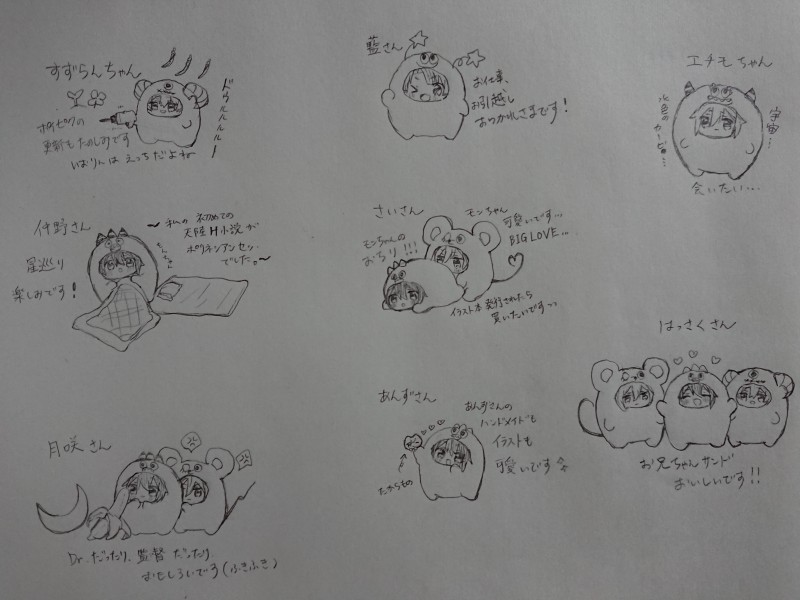 すずらんちゃん
ドゥルルルルルー
ポリセクの
更新もたのしみです
いおりんはえっちだよね
仔野さん
星巡り
楽しみです!
〜私の初めての
天陸H小説が
ポリネシアンセッ..
でした。〜
月咲さん
Dr.だったり、監督だったり
おもしろいです(ふきふき)
藍さん
お仕事、
お引越し
おつかれさまです!
さいさん
モンちゃん
可愛いです…
BIG LOVE…
モンちゃんの
おしり!!!
イラスト本発行されたら
買いたいです…
あんずさん
あんずさんの
ハンドメイドも
イラストも
可愛いです
たからもの
エチモちゃん
宇宙…
会いたい…
はっさくさん
お兄ちゃんサンド
おいしいです!!